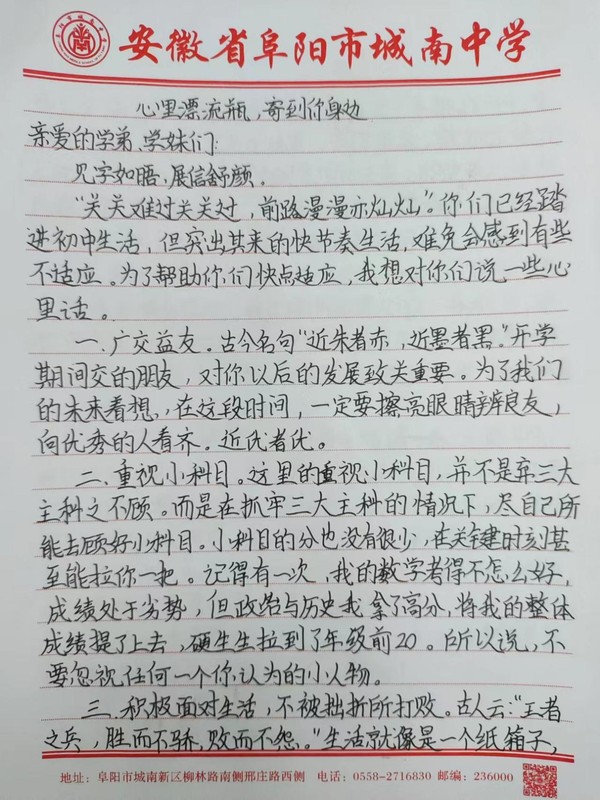 安徽省阜阳市城南中学
心里漂流瓶，寄到你身边
亲爱的学弟、学妹们：
见字如晤，展信舒颜。
“关关难过关关过，前路漫漫亦灿灿”。你们已经踏
进初中生活，但突出其来的快节奏生活，难免会感到有些
不适应。为了帮助你们快点适应，我想对你们说一些心
里话。
一．广交益友。古今名句“近朱者赤，近墨者黑”。开学
期间交的朋友，对你以后的发展致关重要。为了我们
的未来看想，在这段时间，一定要擦亮眼睛辨良友，
向优秀的人看齐。近优者优。
二．重视小科目。这里的重视小科目，并不是弃三大
主科之不顾。而是在抓牢三大主科的情况下，尽自己所
能去顾好小科目。小科目的分也没有很少，在关键时刻甚
至能拉你一把。记得有一次，我的数学考得不怎么好，
成绩处于劣势，但政治与历史我拿了高分，将我的整体
成绩提了上去，硬生生拉到了年级前20。所以说，不
要忽视任何一个你认为的小人物。
三．积极面对生活，不被拙折所打败。古人云：“王者
之兵，胜而不骄，败而不怨。”生活就像是一个纸箱子，
地址：阜阳市城南新区柳林路南侧邢庄路西侧 电话：0558-2716830 邮编：236000